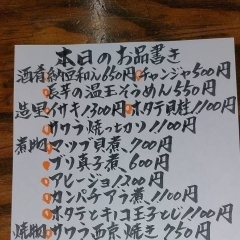 本日のお品書き
酒肴 納豆和え650円 チャンジャ500円
の温玉そうめん550円
造里 イサキ1300円 ホタテ貝柱1100円
サワラ焼っ切り1100円
煮物 マツブ貝煮700円
ブリ真子煮600円
アヒージョ1200円
カンパチアラ煮1100円
ホタテとキノコ玉子とじ1100円
焼物 サワラ西京焼き750円